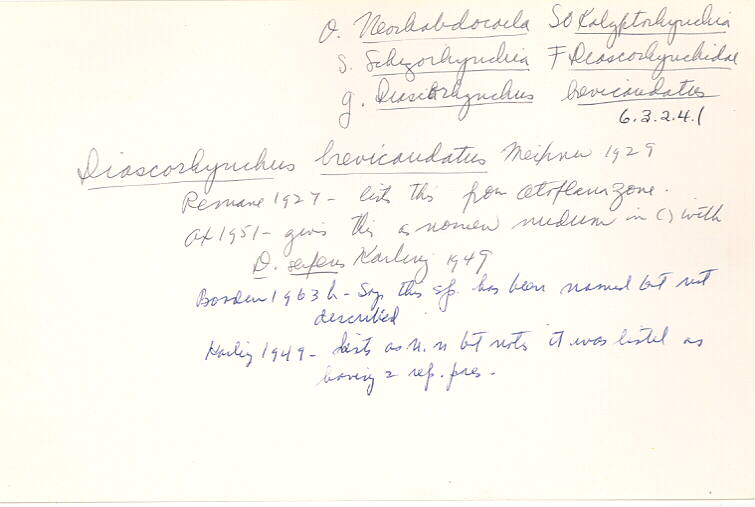 O. Neorhabdocoela SO Kalyptorhynchia
S. Schizorhynchia F Diascorhynchidae
g. Diascorhynchus brevicaudatus
6.3.2.4.1
Diascorhynchus brevicaudatus Meixner 1929
Remane 1927 - lists this from otoplanazone.
Ax 1951 - gives this as nomen nudum in () with
D. serpens Karling 1949
Boaden 1963 b - Says this sp. has been named bt not
described
Karling 1949 - lists as n. n bt notes it was listed as
having 2 rep. pres.